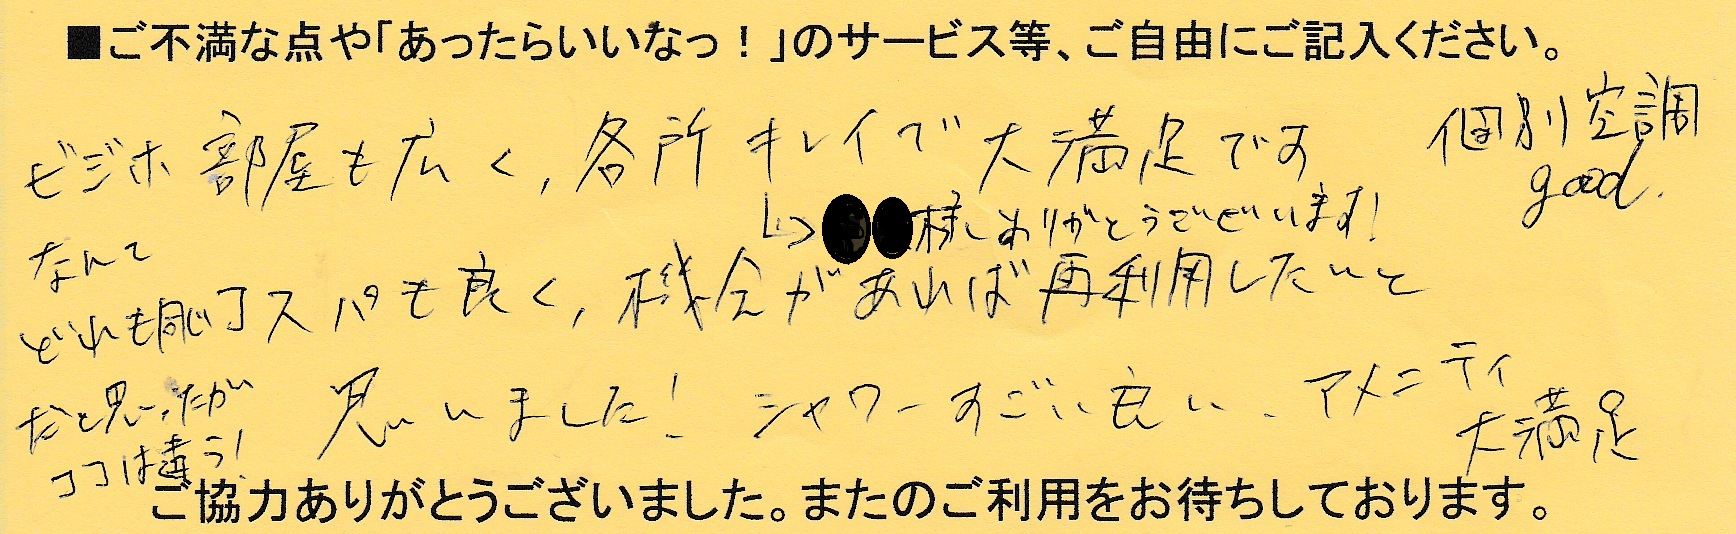 ■ご不満な点や「あったらいいなっ！」のサービス等、ご自由にご記入ください。
部屋も広く、各所キレイで大満足です
個別空調
good.
↳様しありがとうございます!
スパも良く、機会があれば再利用したいと
思いました! シャワーすごい良い、アメニティ
大満足
ビジホ
なんて
どれも同じ
だと思ったが
ココは違う!
ご協力ありがとうございました。またのご利用をお待ちしております。